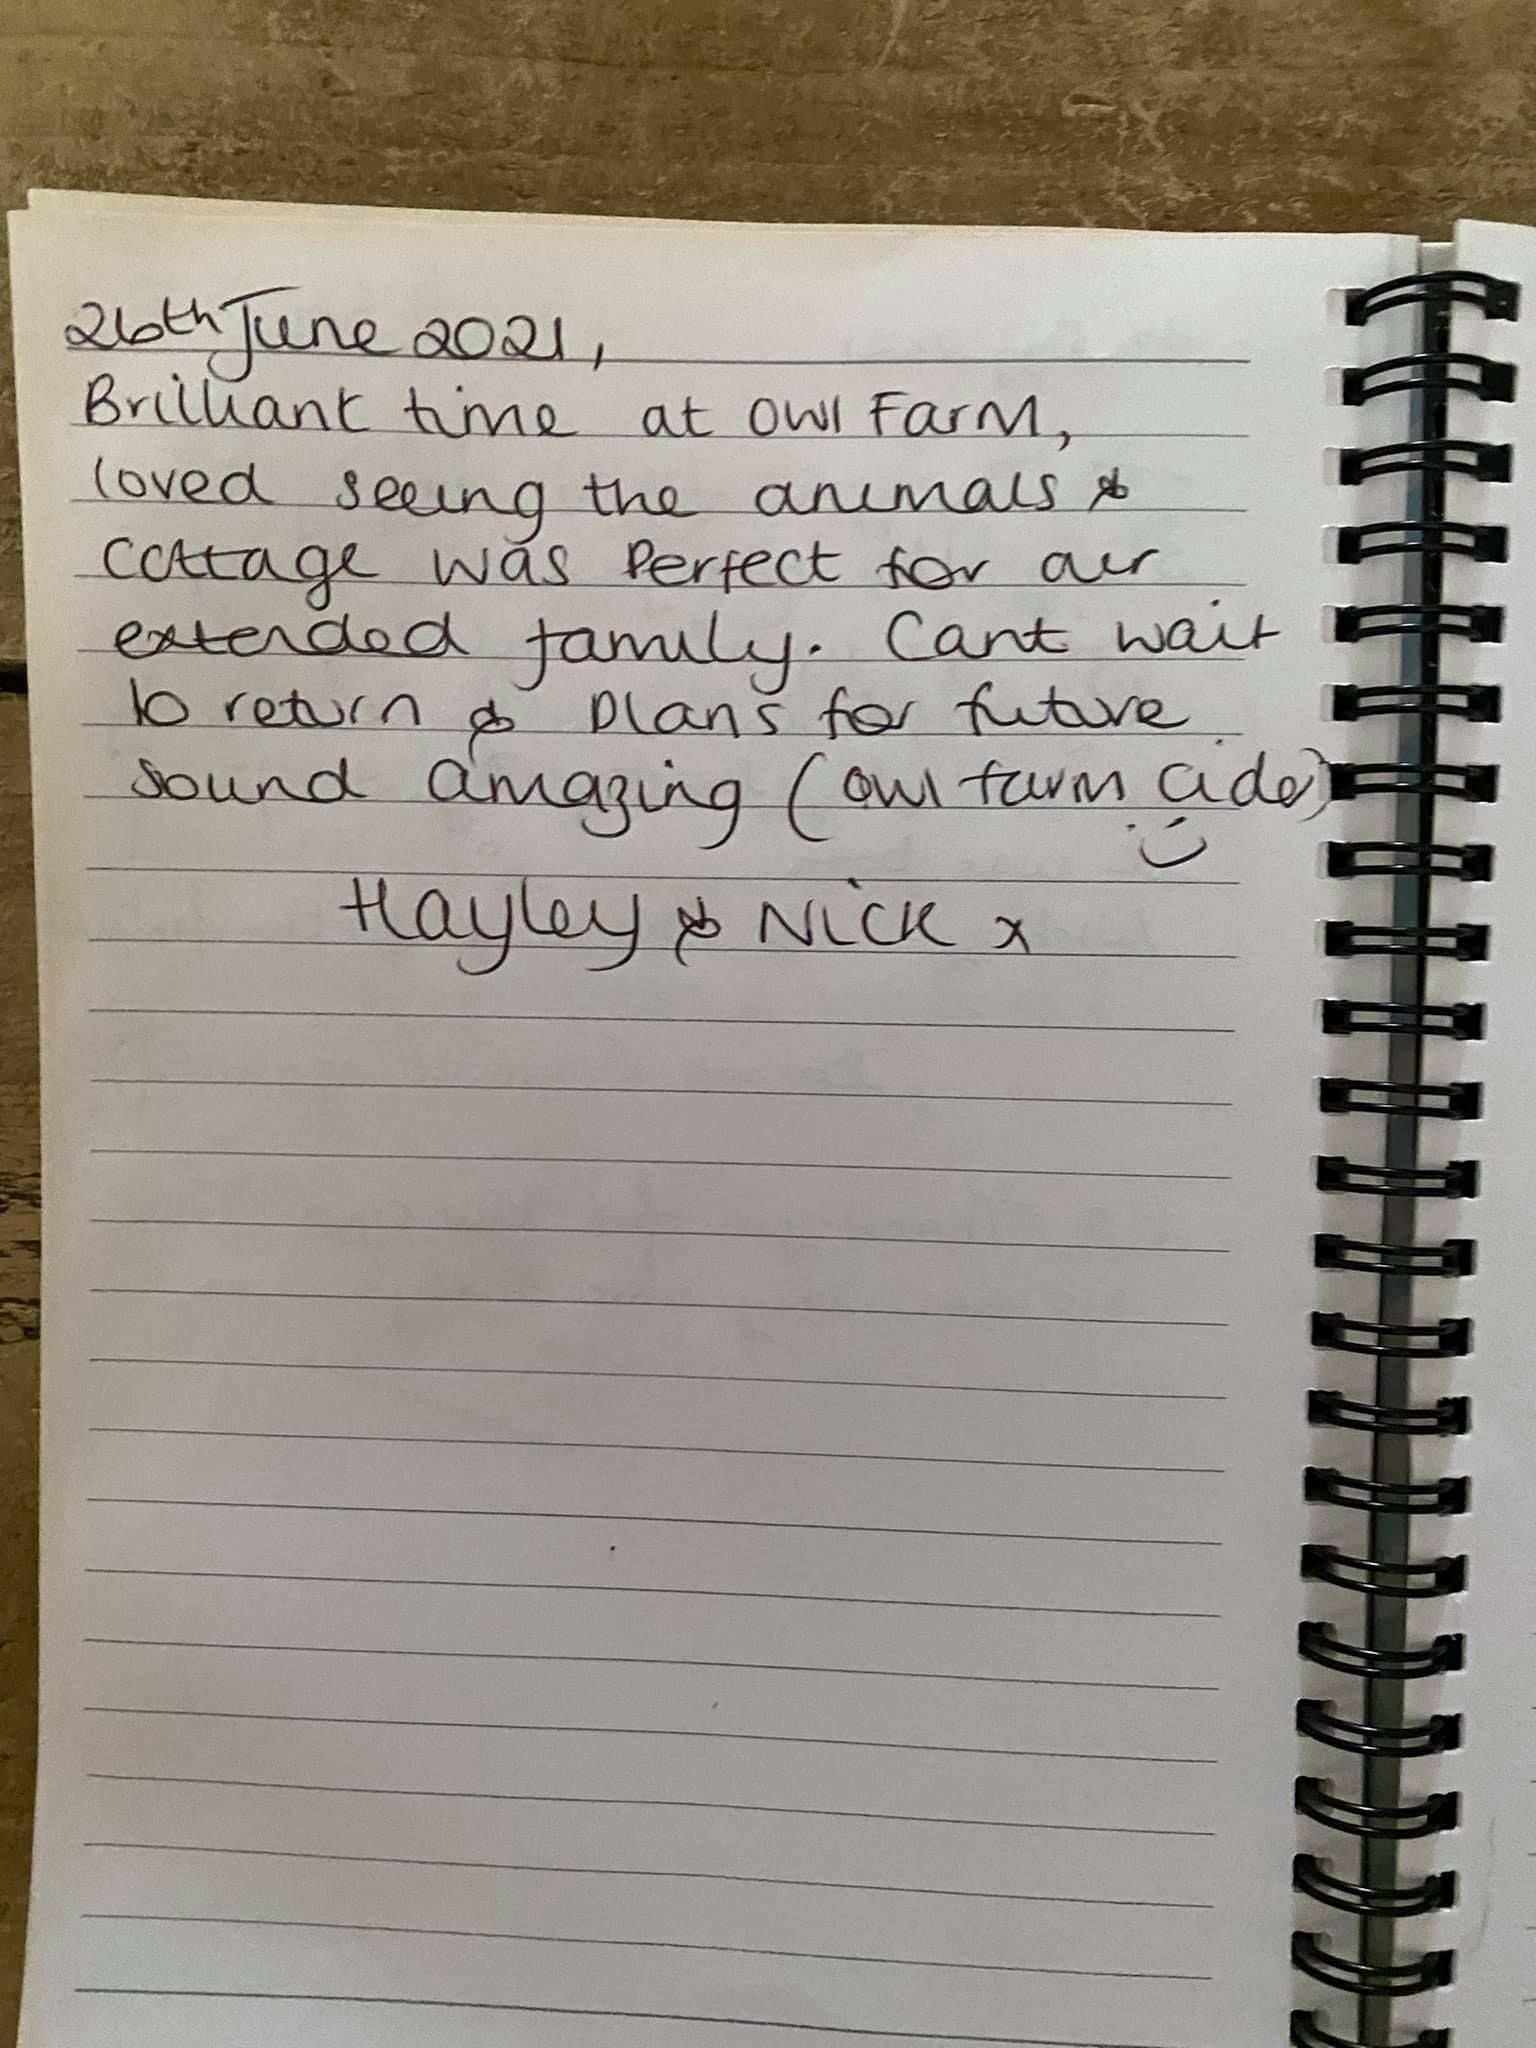 26th June 2021,
Brilliant time at Owl Farm,
loved seeing the animals &
Cottage was Perfect for our
extended family. Cant wait
to return & plans for future
sound amazing (Owl farm Cider)
:)
Hayley & Nick x